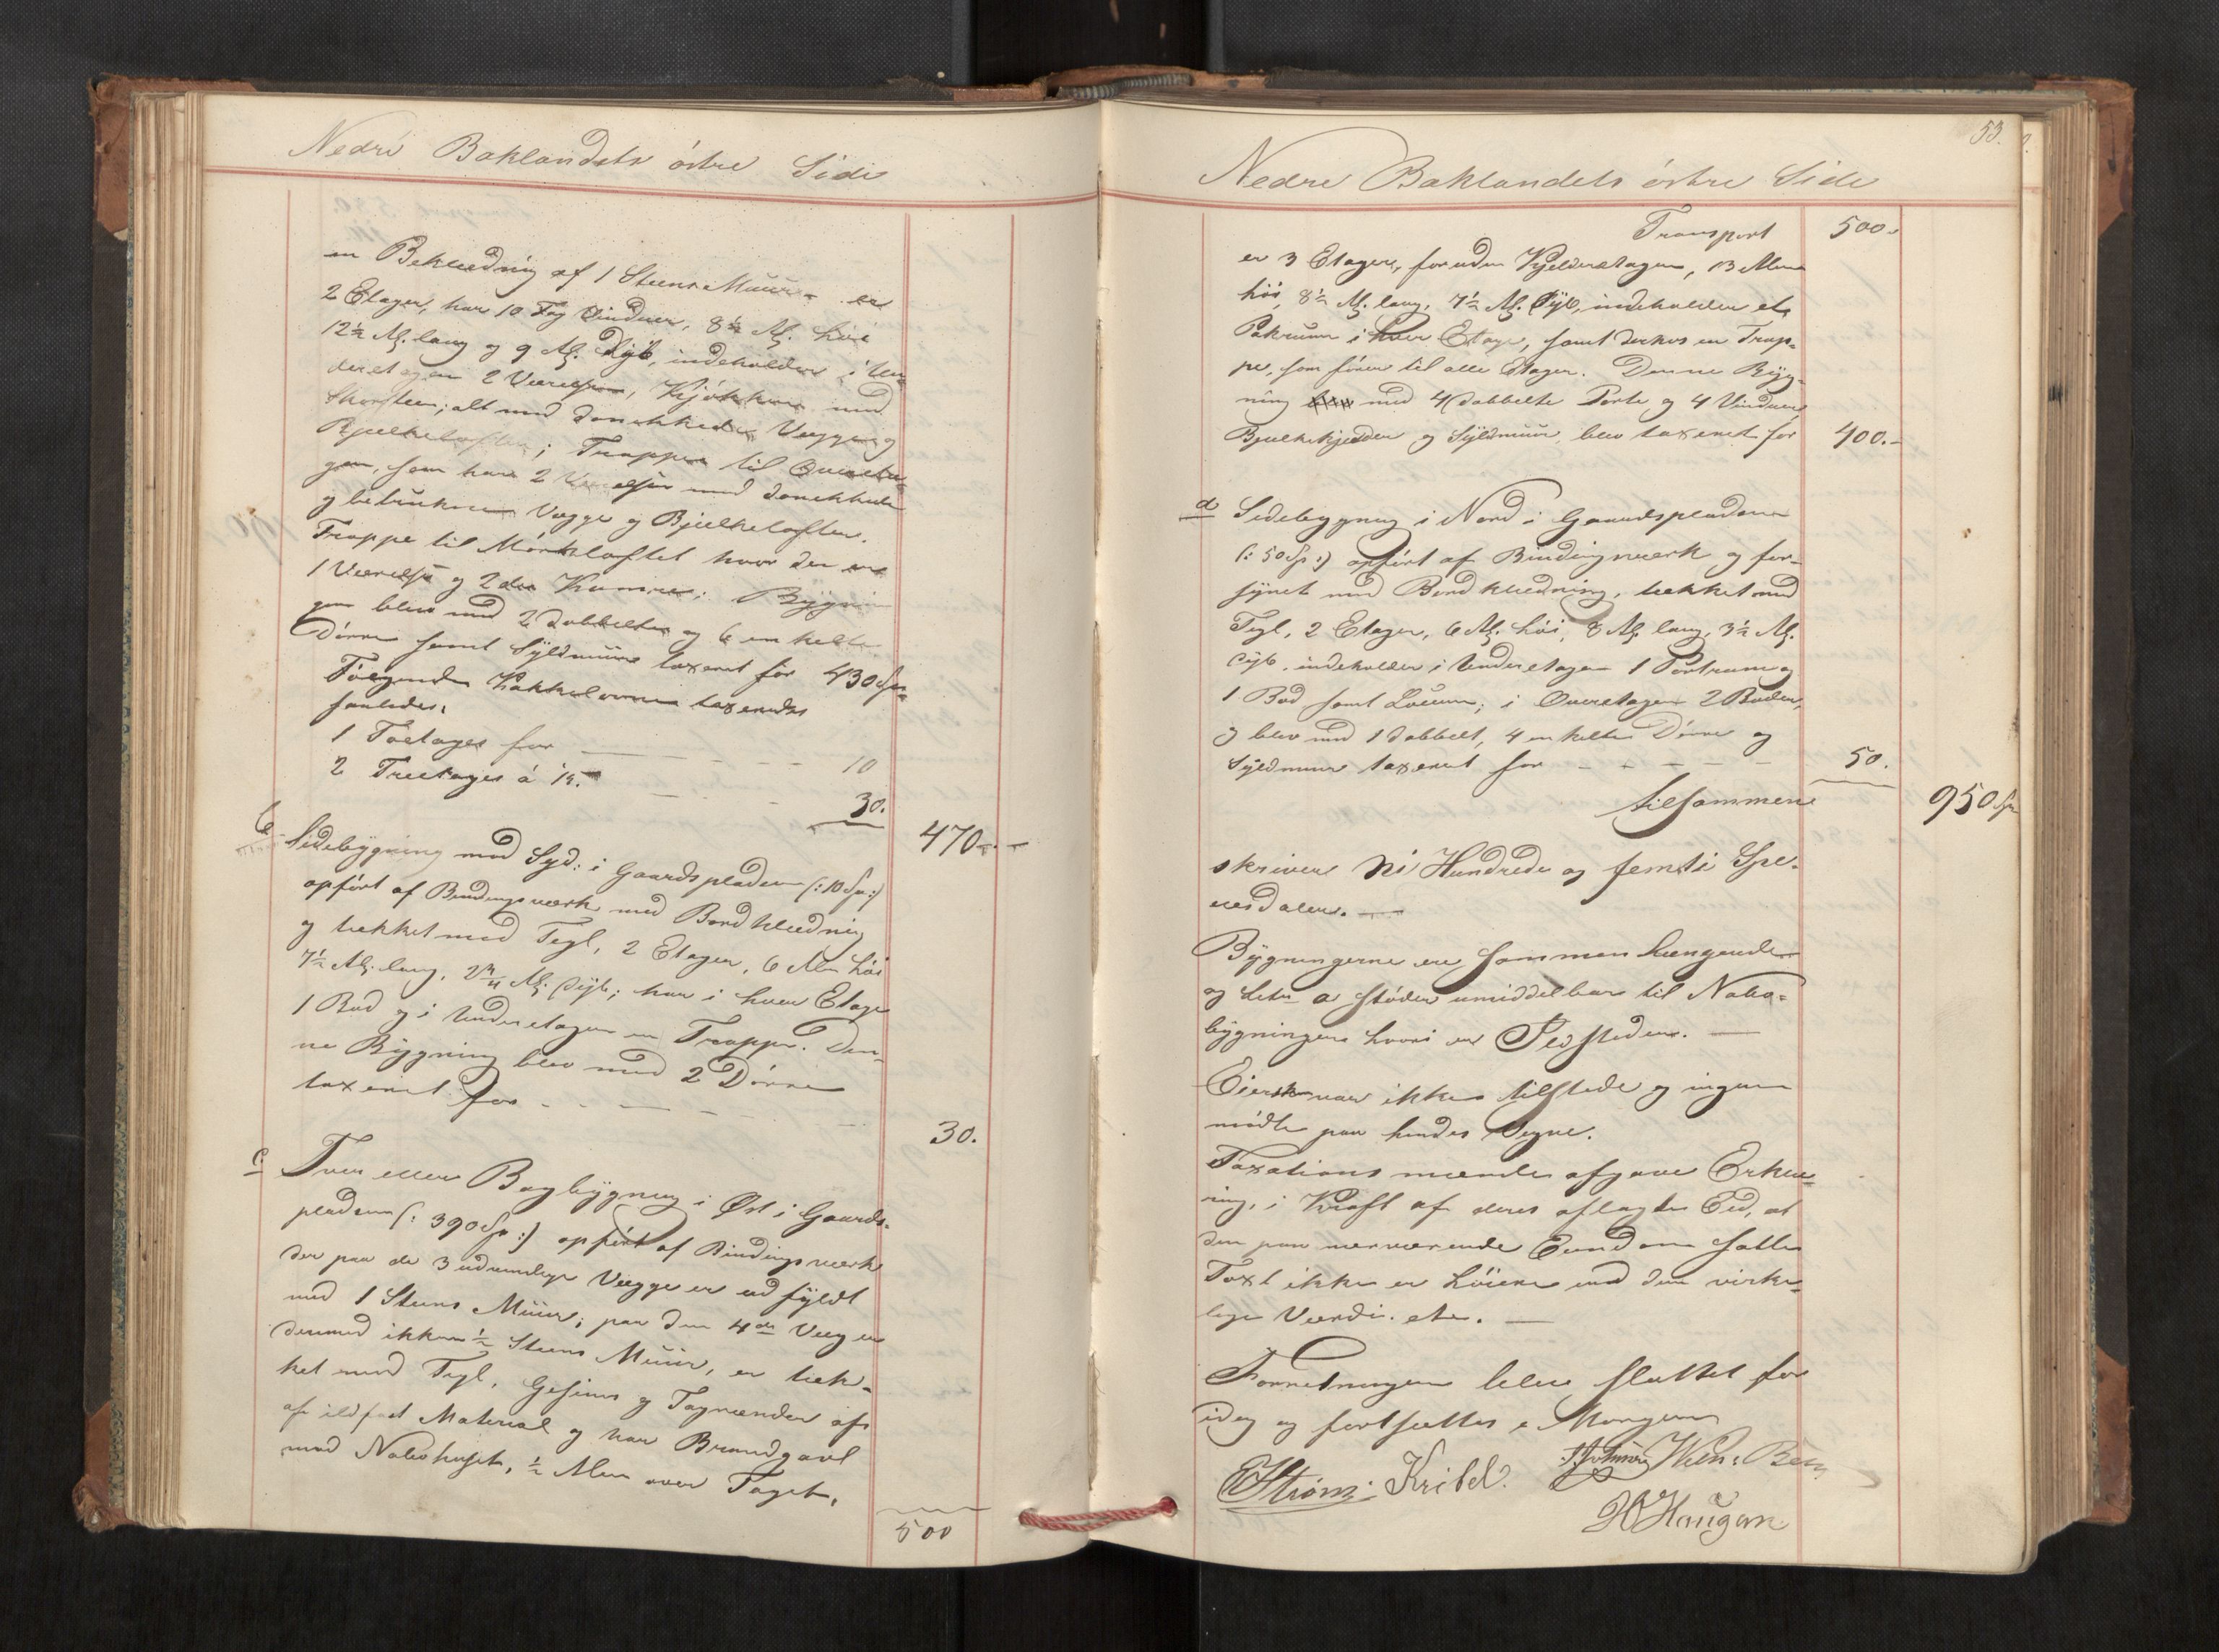 Nedre Baklandets östre Side
en Beklædning af 1 Steens Muur er
2 Etager, har 10 Fag Vinduer, 8½ Al. höi
12½ Al. lang og 9 Al. dyb, indeholder i Un-
deretagen 2 Værelser, Kjökken med
Skorsteen; alt med Vægge og
Bjelkelofter; Trappe til Overeta-
gen, som har 2 Værelser med
og betrukne Vægge og Bjelkelofter.
Trappe til Mörkloftet hvor der er
1 Værelse og 2de Kamre. Bygnin
gen blev med 2 dobbelte og 6 enkelte
Dörre samt Syldmuur taxeret for 430 Spd
Fölgende Kakkelovne taxeredes
saaledes.
1 Toetages for - - - 10
2 Treetages á 15. - - - 30.
470 -
b. Sidebygning mod Syd i Gaardspladsen (: 10 Sp :)
opfört af Bindingsværk med Bordklædning
og tækket med Tegl, 2 Etager, 6 Alen höi
7½ Al. lang, 2¾ Al. dyb; har i hver Etage
1 Bod og i Underetagen en Trappe. Den-
ne Bygning blev med 2 Dörre
taxeret for - - - - 30.
c. Tver eller Bagbygning i Öst i Gaards-
pladsen (: 390 Sp :) opfört af Bindingsværk
der paa de 3 udvendige Vægge er udfyldt
med 1 Steens Muur; paa den 4de Væg er
derimod ikkun ½ Steens Muur, er tæk-
ket med Tegl, Gesims og Tagrender af
af ildfast Material og har Brandgavl
mod Nabohuset, ½ Alen over Taget,
500
53.
Nedre Baklandets östre Side
Transport 500.
er 3 Etager, foruden Kjelderetagen, 13 Alen
höi, 8½ Al. lang, 7½ Al. dyb, indeholder et
Pakrum i hver Etage, samt derhos en Trap-
pe, som förer til alle Etager. Denne Byg-
ning med 4 dobbelte Porte og 4 Vinduer
Bjelkekjelder og Syldmuur, blev taxeret for 400.-
d Sidebygning i Nord i Gaardspladsen
(: 50 Sp :) opfört af Bindingsværk og for-
synet med Bordklædning, tækket med
Tegl, 2 Etager, 6 Al. höi, 8 Al. lang, 3½ Al.
dyb, indeholder i Underetagen 1 Portrum og
1 Bod samt Locum; i Overetagen 2 Boder,
og blev med 1 dobbelt, 4 enkelte Dörre og
Syldmuur taxeret for - - - - - 50.
tilsammen 950 Sp
skriver Ni Hundrede og femti Spe-
ciesdaler. —
Bygningerne ere sammenhængende
og Litr a stöder umiddelbar til Nabo-
bygningen hvori er Ildsteder. —
Eiersken var ikke tilstede og ingen
mödte paa hendes Vegne.
Taxationsmændene afgave Erklæ-
ring, i Kraft af deres aflagte Eed, at
den paa nærværende Eiendom satte
Taxt ikke er höiere end den virke-
lige Værdi. etc. —
Forretningen blev sluttet for
idag og fortsættes i Morgen
EStröm Kribel.
HHaugan